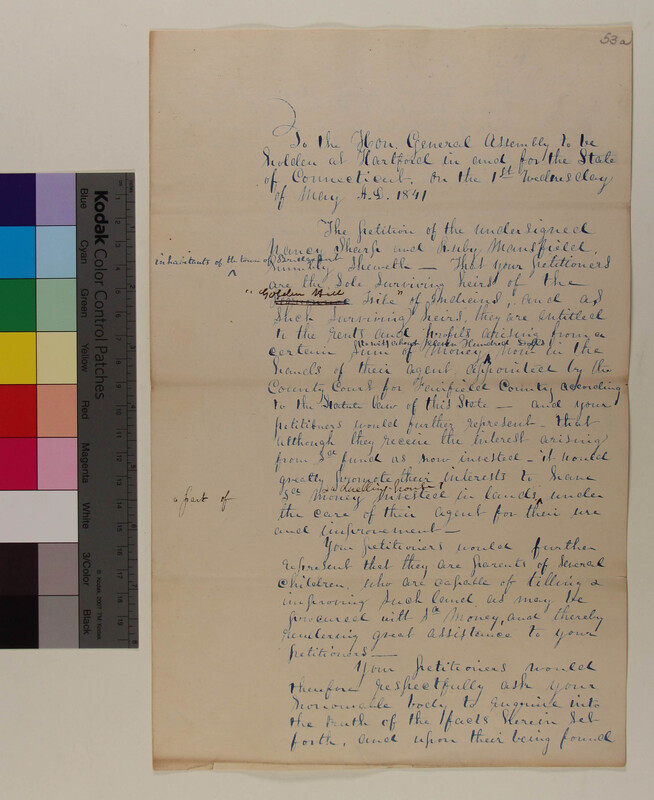 53a
To the Hon. General Assembly to be
holden at Hartford in and for the State
of Connecticut, on the 1st Wednesday
of May A.D. 1841
The petition of the undersigned
Nancy Sharp and Ruby Mansfield,
inhabitants of the town of Bridgeport
humbly Sheweth — That your petitioners
are the Sole Surviving heirs of the
"Golden Hill
Tribe" of Indians, and as
Such Surviving heirs, they are entitled
to the rents and profits arising from a
(being about Eleven Hundred Dolls)
certain Sum of Money, now in the
hands of their agent, appointed by the
County Court for Fairfield County according
to the Statute Law of this State — and your
petitioners would further represent — that
although they receive the interest arising
from Sd fund as now invested — it would
greatly promote their interests to have
a part of
& a dwelling house
Sd Money invested in lands, under
the care of their agent for their use
and improvement —
Your petitioners would further
represent that they are parents of Several
Children, who are capable of tilling &
improving Such land, as may be
procured with Sd Money, and thereby
rendering great assistance to your
petitioners —
Your petitioners would
therefore respectfully ask your
honorable body to enquire into
the truth of the facts herein Set
forth, and upon their being found
Kodak Color Control Patches
© Kodak, 2007 TM: Kodak
Blue
Cyan
Green
Yellow
Red
Magenta
White
3/Color
Black
1 2 3 4 5 6 7 8 9 10 11 12 13 14 15 16 17 18 19